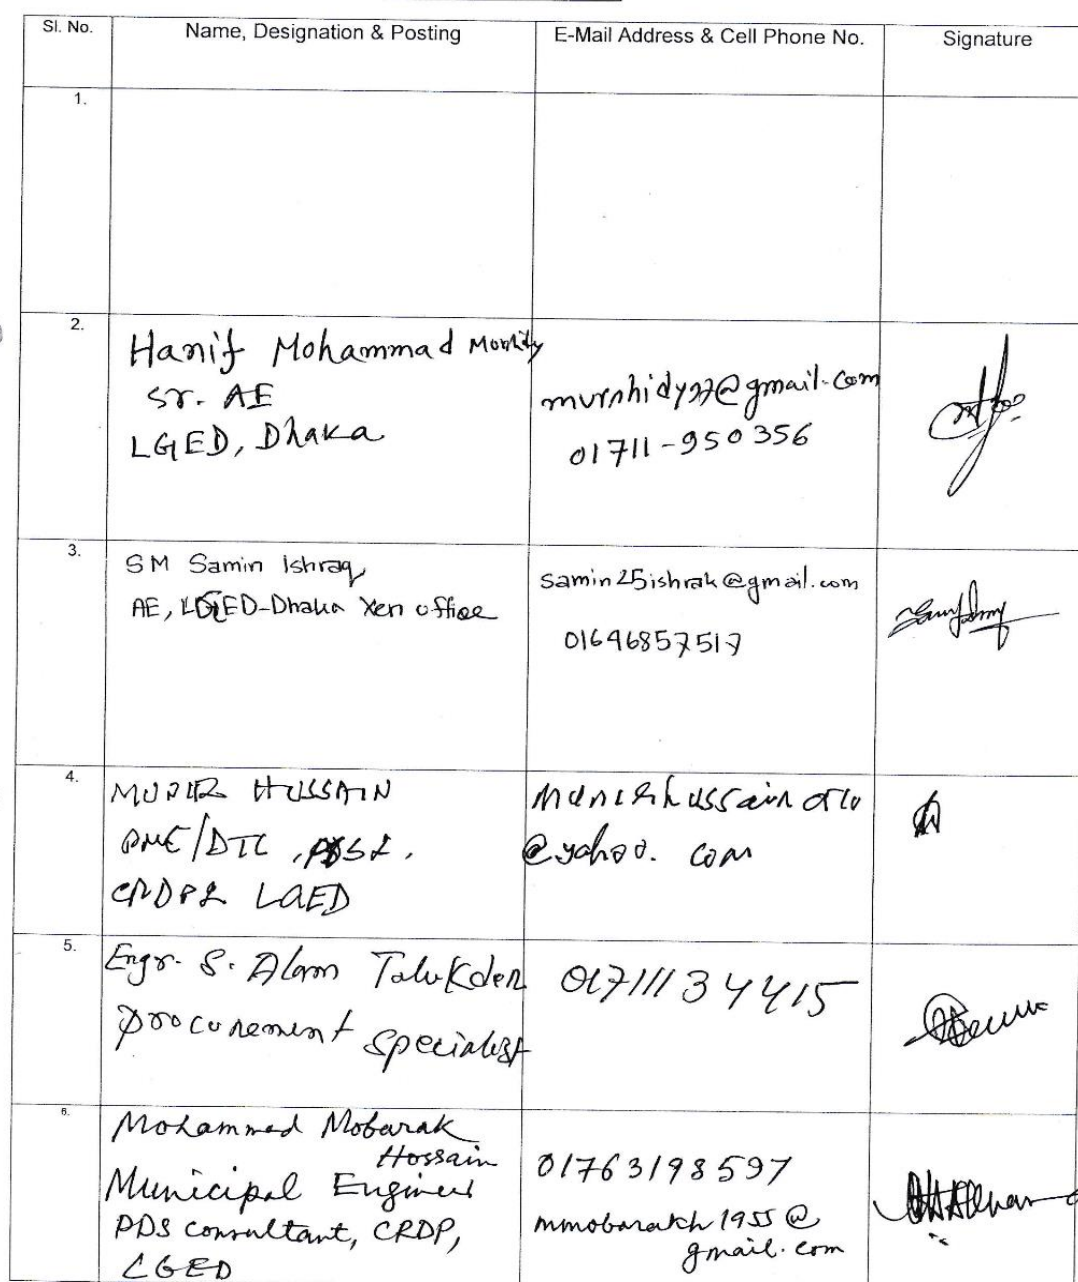 Sl. No.
Name, Designation & Posting
E-Mail Address & Cell Phone No.
Signature
1.
2.
Hanif Mohammad
Sr. AE
LGED, Dhaka
@gmail.com
01711-950356
3.
SM Samin Ishraq
AE, LGED-Dhaka Xen office
samin25ishrak@gmail.com
01646857517
4.
MUNIR HUSSAIN
/DTC
LGED
@yahoo. com
5.
Engr. S. Alam Talukder
Procurement Specialist
01711134415
6.
Mohammad Mobarak
Hossain
Municipal Engineer
PDS consultant, CRDP,
LGED
01763198597
mmobarakh1955@
gmail.com